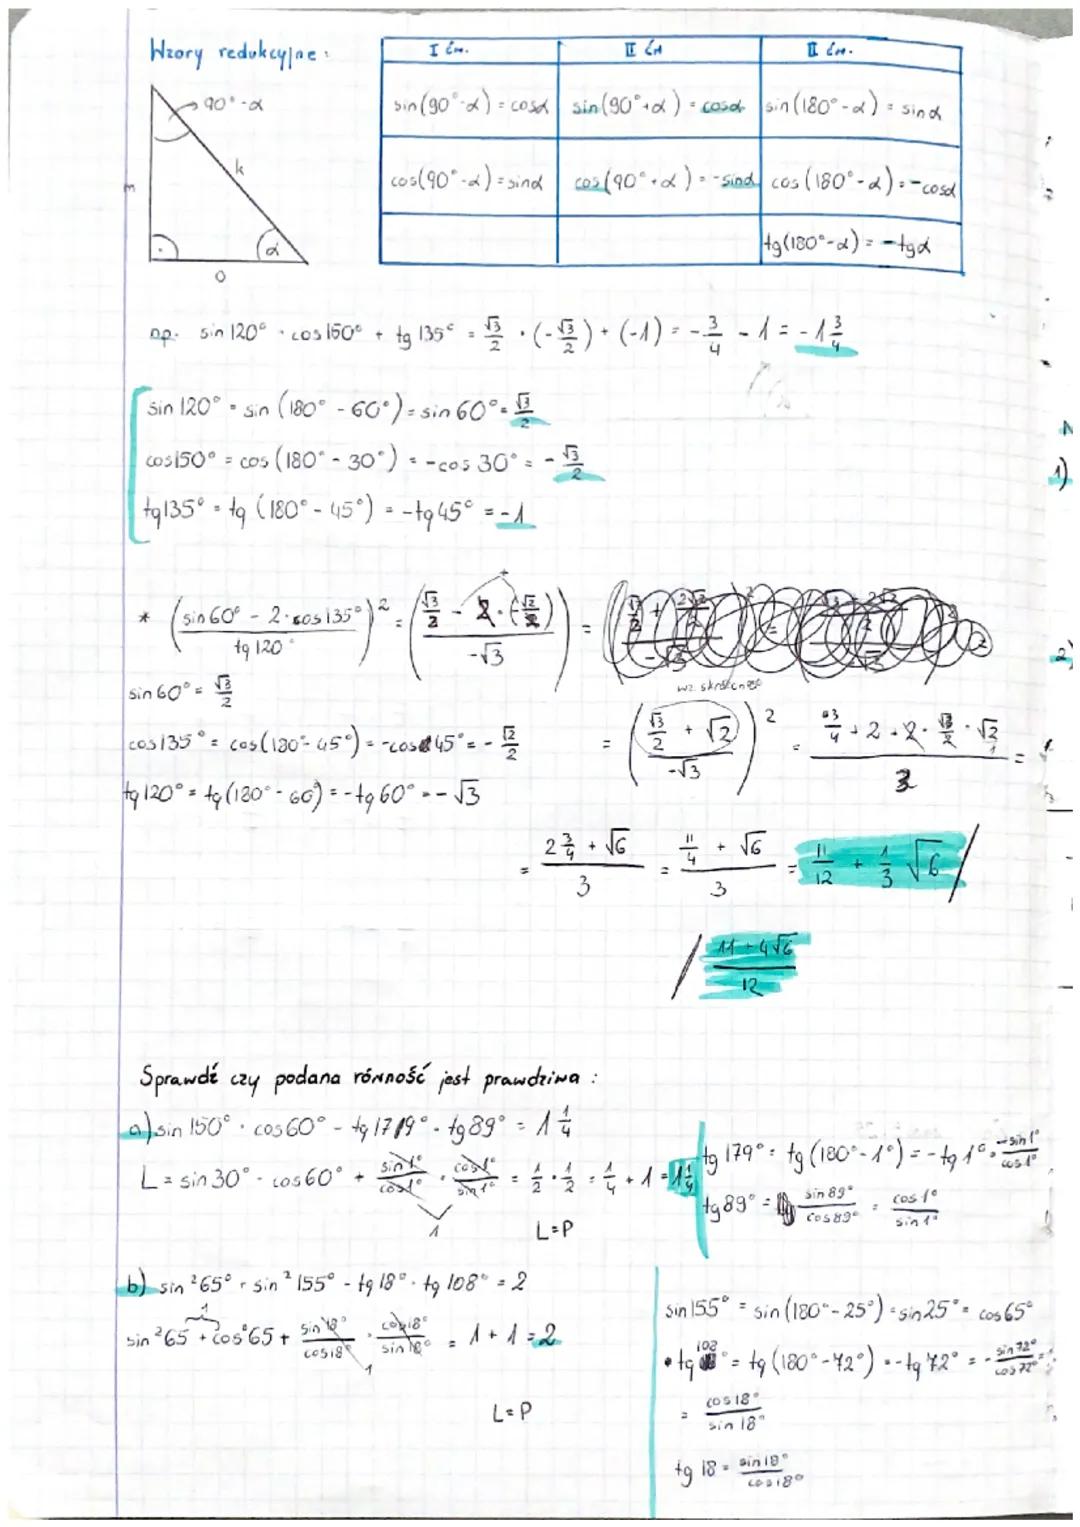 Wzory redukcyjne:
I ćw. II ćw. II ćw.
90°-α
sin(90°-α) = cosα sin(90°+α) = cosα sin(180°-α) = sinα
k
cos(90°-α) = sinα cos(90°+α) = -sinα cos(180°-α) = -cosα
m
tg(180°-α) = -tgα
α
o
np. sin 120° · cos 150° + tg 135° = √3/2 · (-√3/2) + (-1) = -3/4 - 1 = -1 3/4
sin 120° = sin (180° - 60°) = sin 60° = √3/2
cos150° = cos (180° - 30°) = -cos 30° = -√3/2
tg135° = tg (180° - 45°) = -tg45° = -1
* ((sin60° - 2·cos135°)/tg 120°)² = ((√3/2 - 2·(-√2/2))/-√3) =
sin 60° = √3/2
wz. skróconego
cos135° = cos(180°-45°) = -cos45° = -√2/2
= ((√3/2 + √2)/-√3)² = (3/4 + 2 + 2·√3/2·√2)/3 =
tg120° = tg(180°-60°) = -tg60° = -√3
= (2 3/4 + √6)/3 = (11/4 + √6)/3 = 11/12 + 1/3 √6 /
/ (11+4√6)/12
Sprawdź czy podana równość jest prawdziwa:
a) sin 150° · cos60° - tg 179° · tg89° = 1 1/4
L = sin30° · cos60° + sin1°/cos1° · cos1°/sin1° = 1/2 · 1/2 = 1/4 + 1 = 1 1/4
1
L=P
tg 179° = tg (180°-1°) = -tg 1° = -sin1°/cos1°
tg89° = sin89°/cos89° = cos1°/sin1°
b) sin²65° + sin²155° - tg18° · tg 108° = 2
1
sin²65 + cos²65 + sin18°/cos18° · cos18°/sin18° = 1 + 1 = 2
1
L=P
sin155° = sin (180°-25°) = sin25° = cos65°
• tg 108° = tg (180°-72°) = -tg 72° = -sin72°/cos72° =
= cos18°/sin18°
tg 18 = sin18°/cos18°
1)
2)